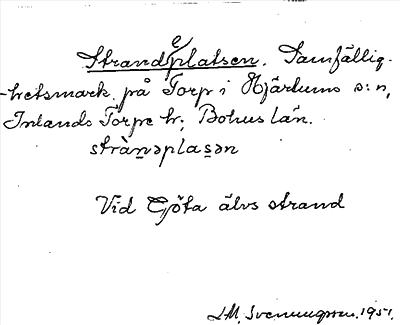 Strandeplatsen. Samfällig-
-hetsmark på Torp i Hjärtums s:n,
Inlands Torpe hr; Bohus län.
strànəplasən
Vid Göta älvs strand
J.M. Svenungsson. 1951.